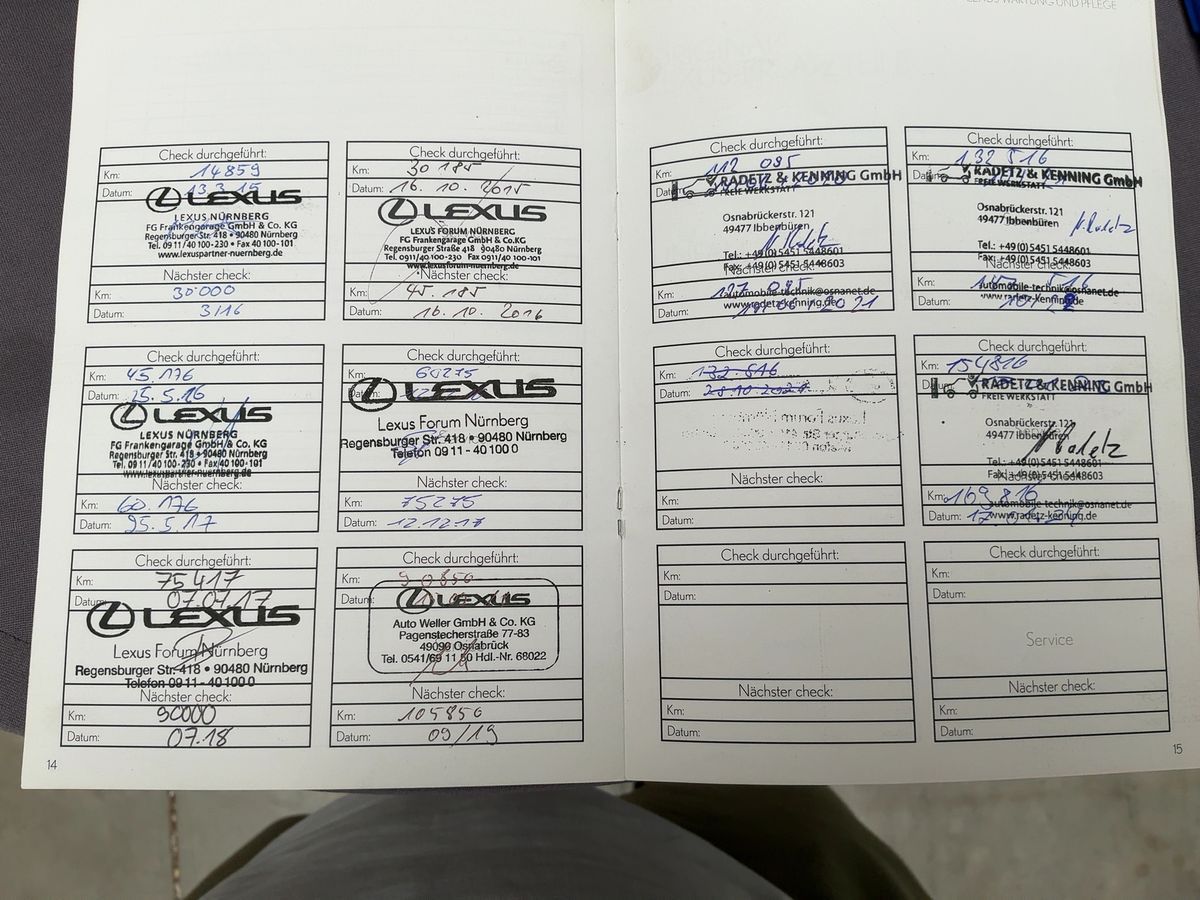 WARTUNG UND PFLEGE
Check durchgeführt:
Km: 14859
Datum: 13.3.15
LEXUS
LEXUS NÜRNBERG
FG Frankengarage GmbH & Co. KG
Regensburger Str. 418 • 90480 Nürnberg
Tel. 09 11/ 40 100-230 • Fax 40 100-101
www.lexuspartner-nuernberg.de
Nächster check:
Km: 30'000
Datum: 3/16
Check durchgeführt:
Km: 30 185
Datum: 16. 10. 2015
LEXUS
LEXUS FORUM NÜRNBERG
FG Frankengarage GmbH & Co.KG
Regensburger Straße 418 90480 Nürnberg
Tel. 0911/40 100-230 Fax 0911/40 100-101
www.lexusforum-nuernberg.de
Nächster check:
Km: 45. 185
Datum: 16. 10. 2016
Check durchgeführt:
Km: 45.176
Datum: 25.5.16
LEXUS
LEXUS NÜRNBERG
FG Frankengarage GmbH & Co. KG
Regensburger Str. 418 • 90480 Nürnberg
Tel. 09 11/ 40 100-230 • Fax 40 100-101
www.lexuspartner-nuernberg.de
Nächster check:
Km: 60.176
Datum: 25.5.17
Check durchgeführt:
Km: 60275
Datum:
LEXUS
Lexus Forum Nürnberg
Regensburger Str. 418 • 90480 Nürnberg
Telefon 09 11 - 40 100 0
Nächster check:
Km: 75275
Datum: 12.12.17
Check durchgeführt:
Km: 75417
Datum: 07.07.17
LEXUS
Lexus Forum Nürnberg
Regensburger Str. 418 • 90480 Nürnberg
Telefon 09 11 - 40 100 0
Nächster check:
Km: 90000
Datum: 07.18
Check durchgeführt:
Km: 90850
Datum:
LEXUS
Auto Weller GmbH & Co. KG
Pagenstecherstraße 77-83
49090 Osnabrück
Tel. 0541/69 11 50 Hdl.-Nr. 68022
Nächster check:
Km: 105850
Datum: 09/19
14
Check durchgeführt:
Km: 112 095
Datum:
RADETZ & KENNING GmbH
FREIE WERKSTATT
Osnabrückerstr. 121
49477 Ibbenbüren
Tel.: +49(0)5451 5448601
Fax: +49(0)5451 5448603
Nächster check:
Km: 127 095
automobile-technik@osnanet.de
www.radetz-kenning.de
Datum: 2021
Check durchgeführt:
Km: 132 516
Datum:
RADETZ & KENNING GmbH
FREIE WERKSTATT
Osnabrückerstr. 121
49477 Ibbenbüren
Tel.: +49(0)5451 5448601
Fax: +49(0)5451 5448603
Nächster check:
Km:
automobile-technik@osnanet.de
www.radetz-kenning.de
Datum:
Check durchgeführt:
Km: 132 516
Datum: 28.10.2021
Nächster check:
Km:
Datum:
Check durchgeführt:
Km: 154816
Datum:
RADETZ & KENNING GmbH
FREIE WERKSTATT
Osnabrückerstr. 121
49477 Ibbenbüren
Tel.: +49(0)5451 5448601
Fax: +49(0)5451 5448603
Nächster check:
Km: 169 816
automobile-technik@osnanet.de
www.radetz-kenning.de
Datum:
Check durchgeführt:
Km:
Datum:
Nächster check:
Km:
Datum:
Check durchgeführt:
Km:
Datum:
Service
Nächster check:
Km:
Datum:
15